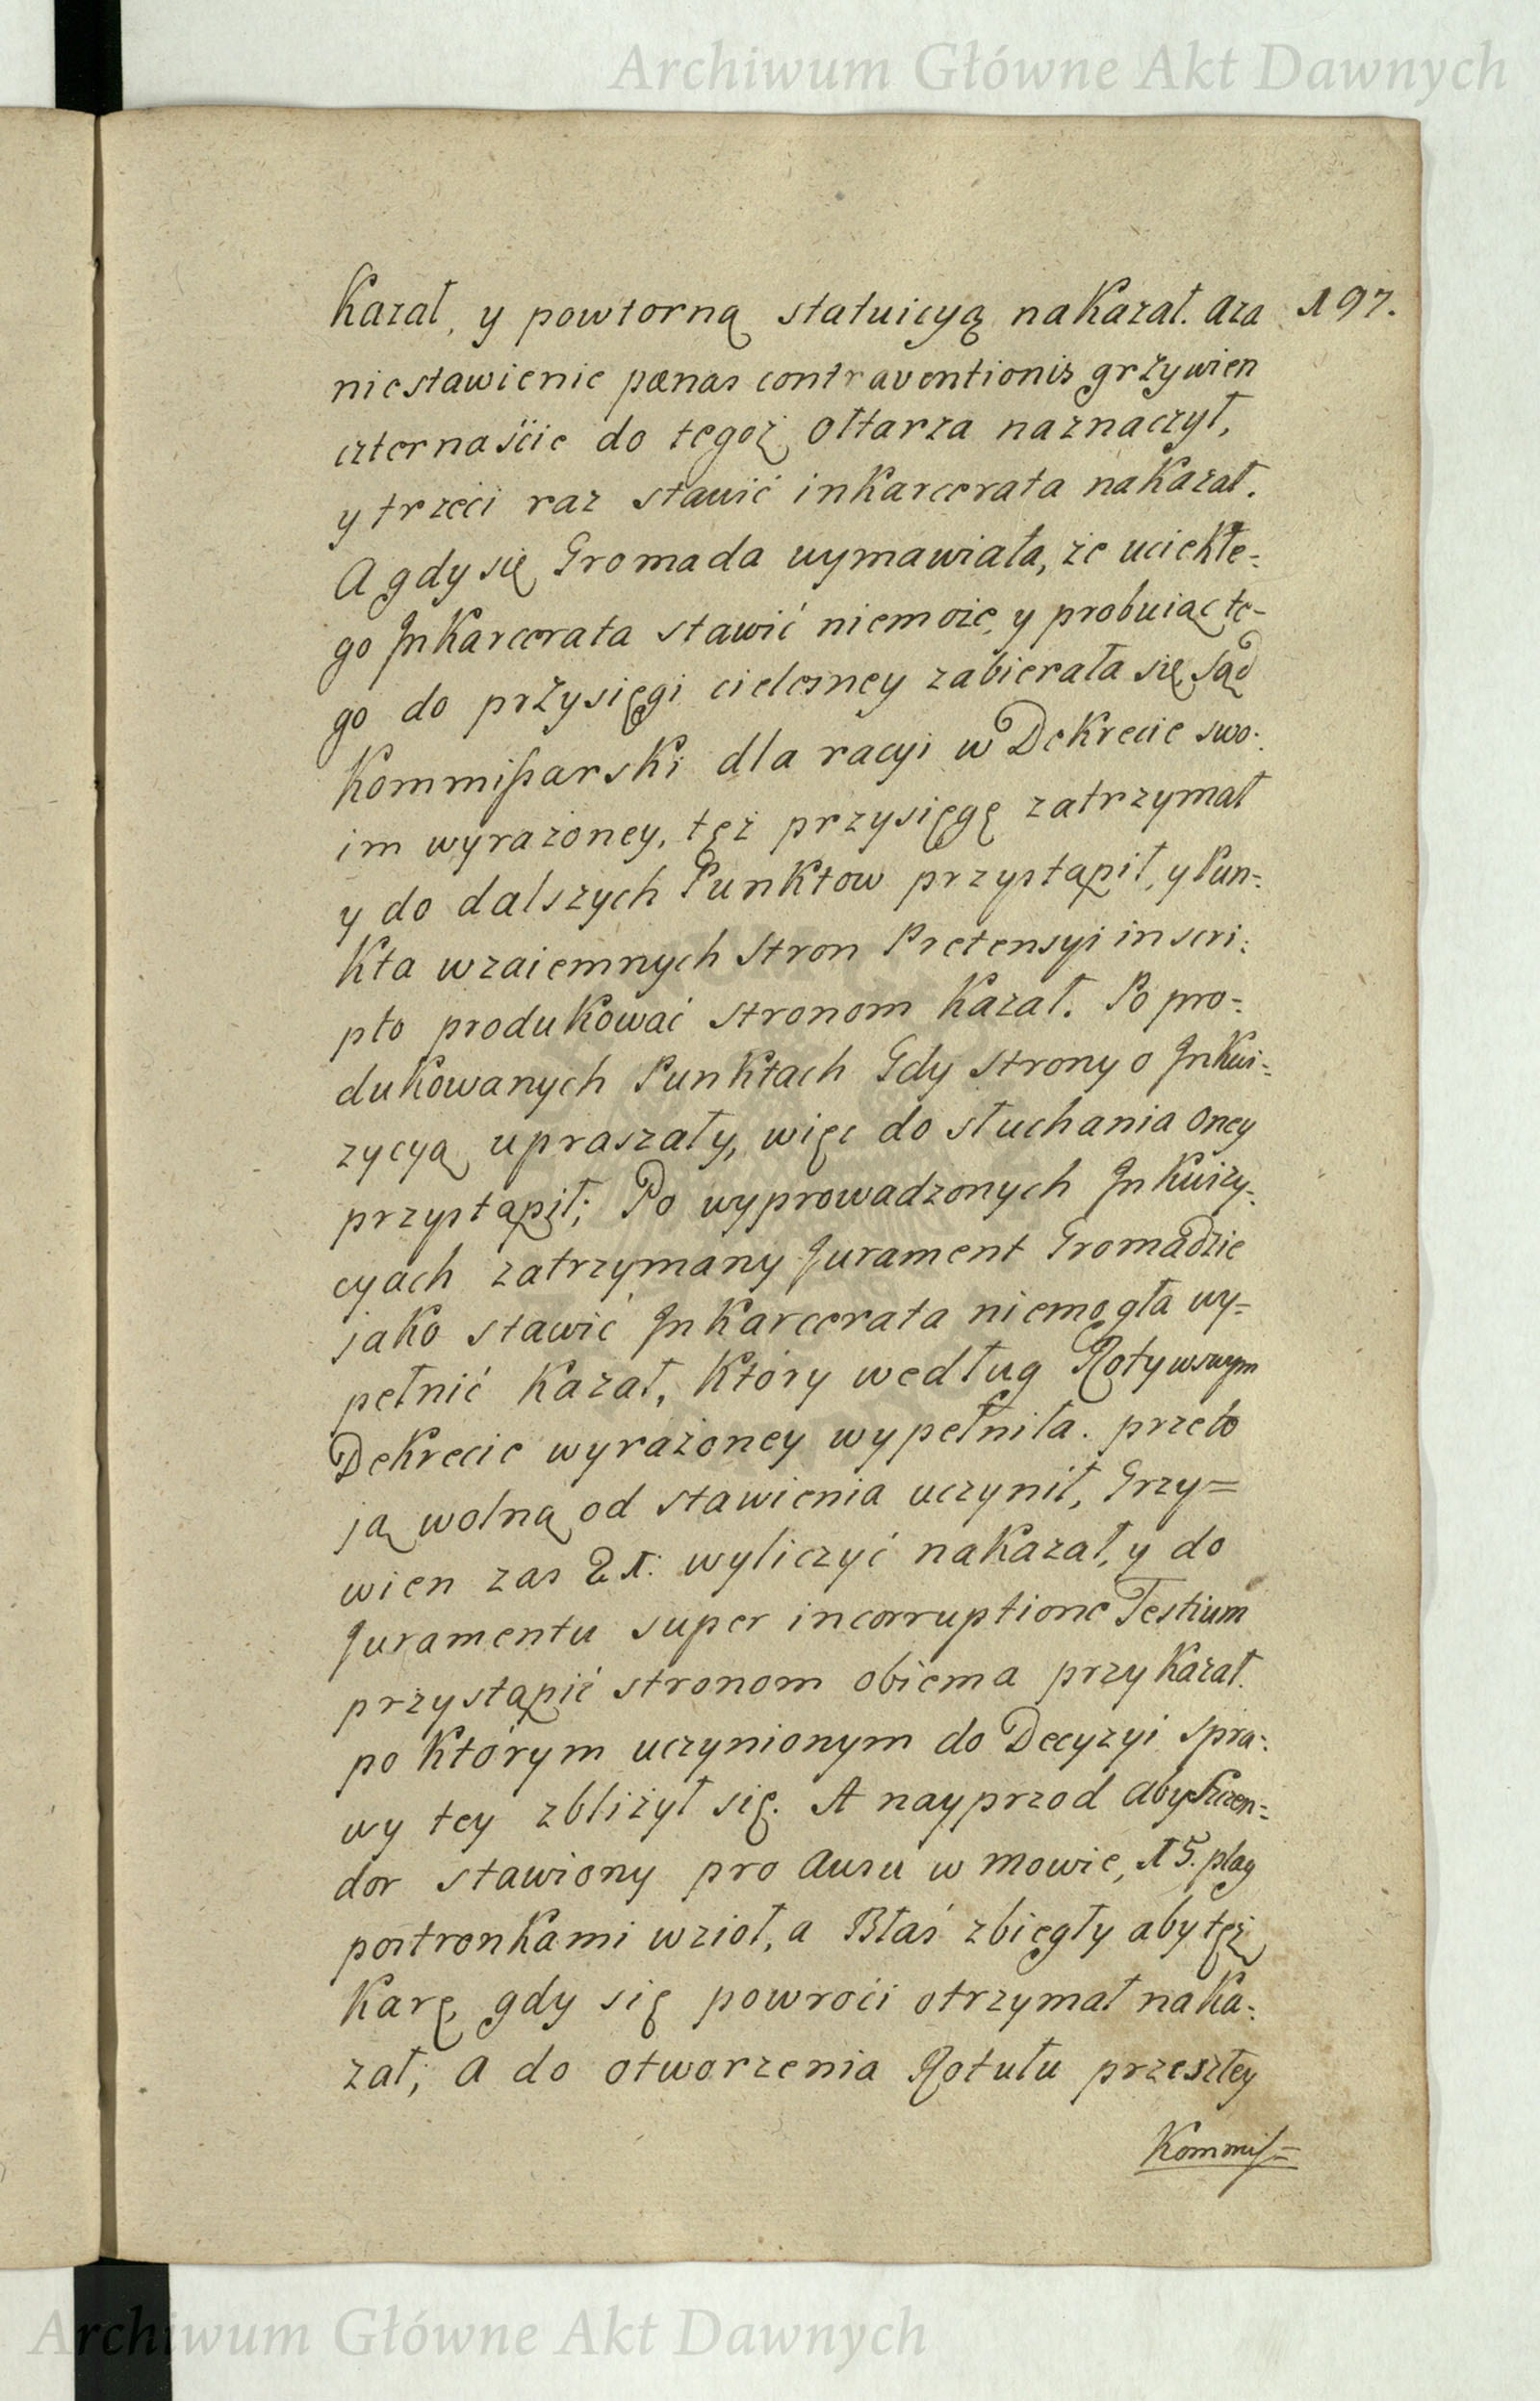 Archiwum Główne Akt Dawnych
Kazał, y powtorną statuicyą nakazał. Aza 197.
niestawienie pœnas contraventionis grzywien
czternaście do tegoż Ołtarza naznaczył,
y trzeci raz stawić inkarcerata nakazał.
A gdy się Gromada wymawiała, że uciekłe-
go Inkarcerata stawić niemoże, y probuiąc te-
go do przysięgi cielesney zabierała się, Sąd
Kommissarski dla racyi w Dekrecie swo-
im wyrażoney, tęż przysięgę zatrzymał
y do dalszych Punktow przystąpił, y Pun-
kta wzaiemnych Stron Pretensyi in scri-
pto produkować stronom kazał. Po pro-
dukowanych Punktach Gdy Strony o Inkwi-
zycyą upraszały, więc do słuchania oney
przystąpił; Po wyprowadzonych Inkwizy-
cyach zatrzymany Jurament Gromadzie
jako stawić Inkarcerata niemogła wy-
pełnić kazał, Który według Roty w swym
Dekrecie wyrażoney wypełniła. przeto
ją wolną od stawienia uczynił, Grzy=
wien zas 21. wyliczyć nakazał, y do
Juramentu super incorruptione Testium
przystąpić stronom obiema przykazał.
po którym uczynionym do Decyzyi Spra-
wy tey zbliżył się. A nayprzod aby Szen-
dor stawiony pro Ausu w mowie, 15. plag
postronkami wzioł, a Błaś zbiegły aby tęż
Karę, gdy się powroci otrzymał naka-
zał; A do otworzenia Rotułu przeszłey
Kommis=
Archiwum Główne Akt Dawnych